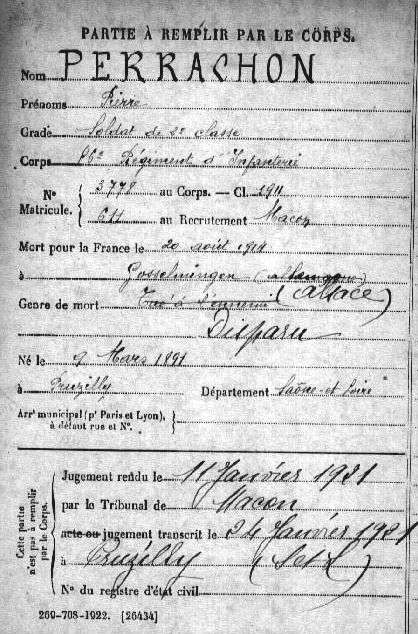 PARTIE À REMPLIR PAR LE CORPS.
Nom PERRACHON
Prénoms Pierre
Grade Soldat de 2e classe
Corps Régiment d'Infanterie
No 3778 au Corps. — Cl. 1911
Matricule. 611 au Recrutement Macon
Mort pour la France le 20 août 1914
à Gosselmingen (Alsace)
Genre de mort Tué à l'ennemi
Disparu
Né le 9 Mars 1891
à Pruzilly Département Saône-et-Loire
Arrt municipal (pr Paris et Lyon), à défaut rue et No.
Cette partie n'est pas à remplir par le Corps.
Jugement rendu le 11 Janvier 1921
par le Tribunal de Macon
acte ou jugement transcrit le 24 Janvier 1921
à Pruzilly (S et L)
No du registre d'état civil
269-708-1922. [26434]